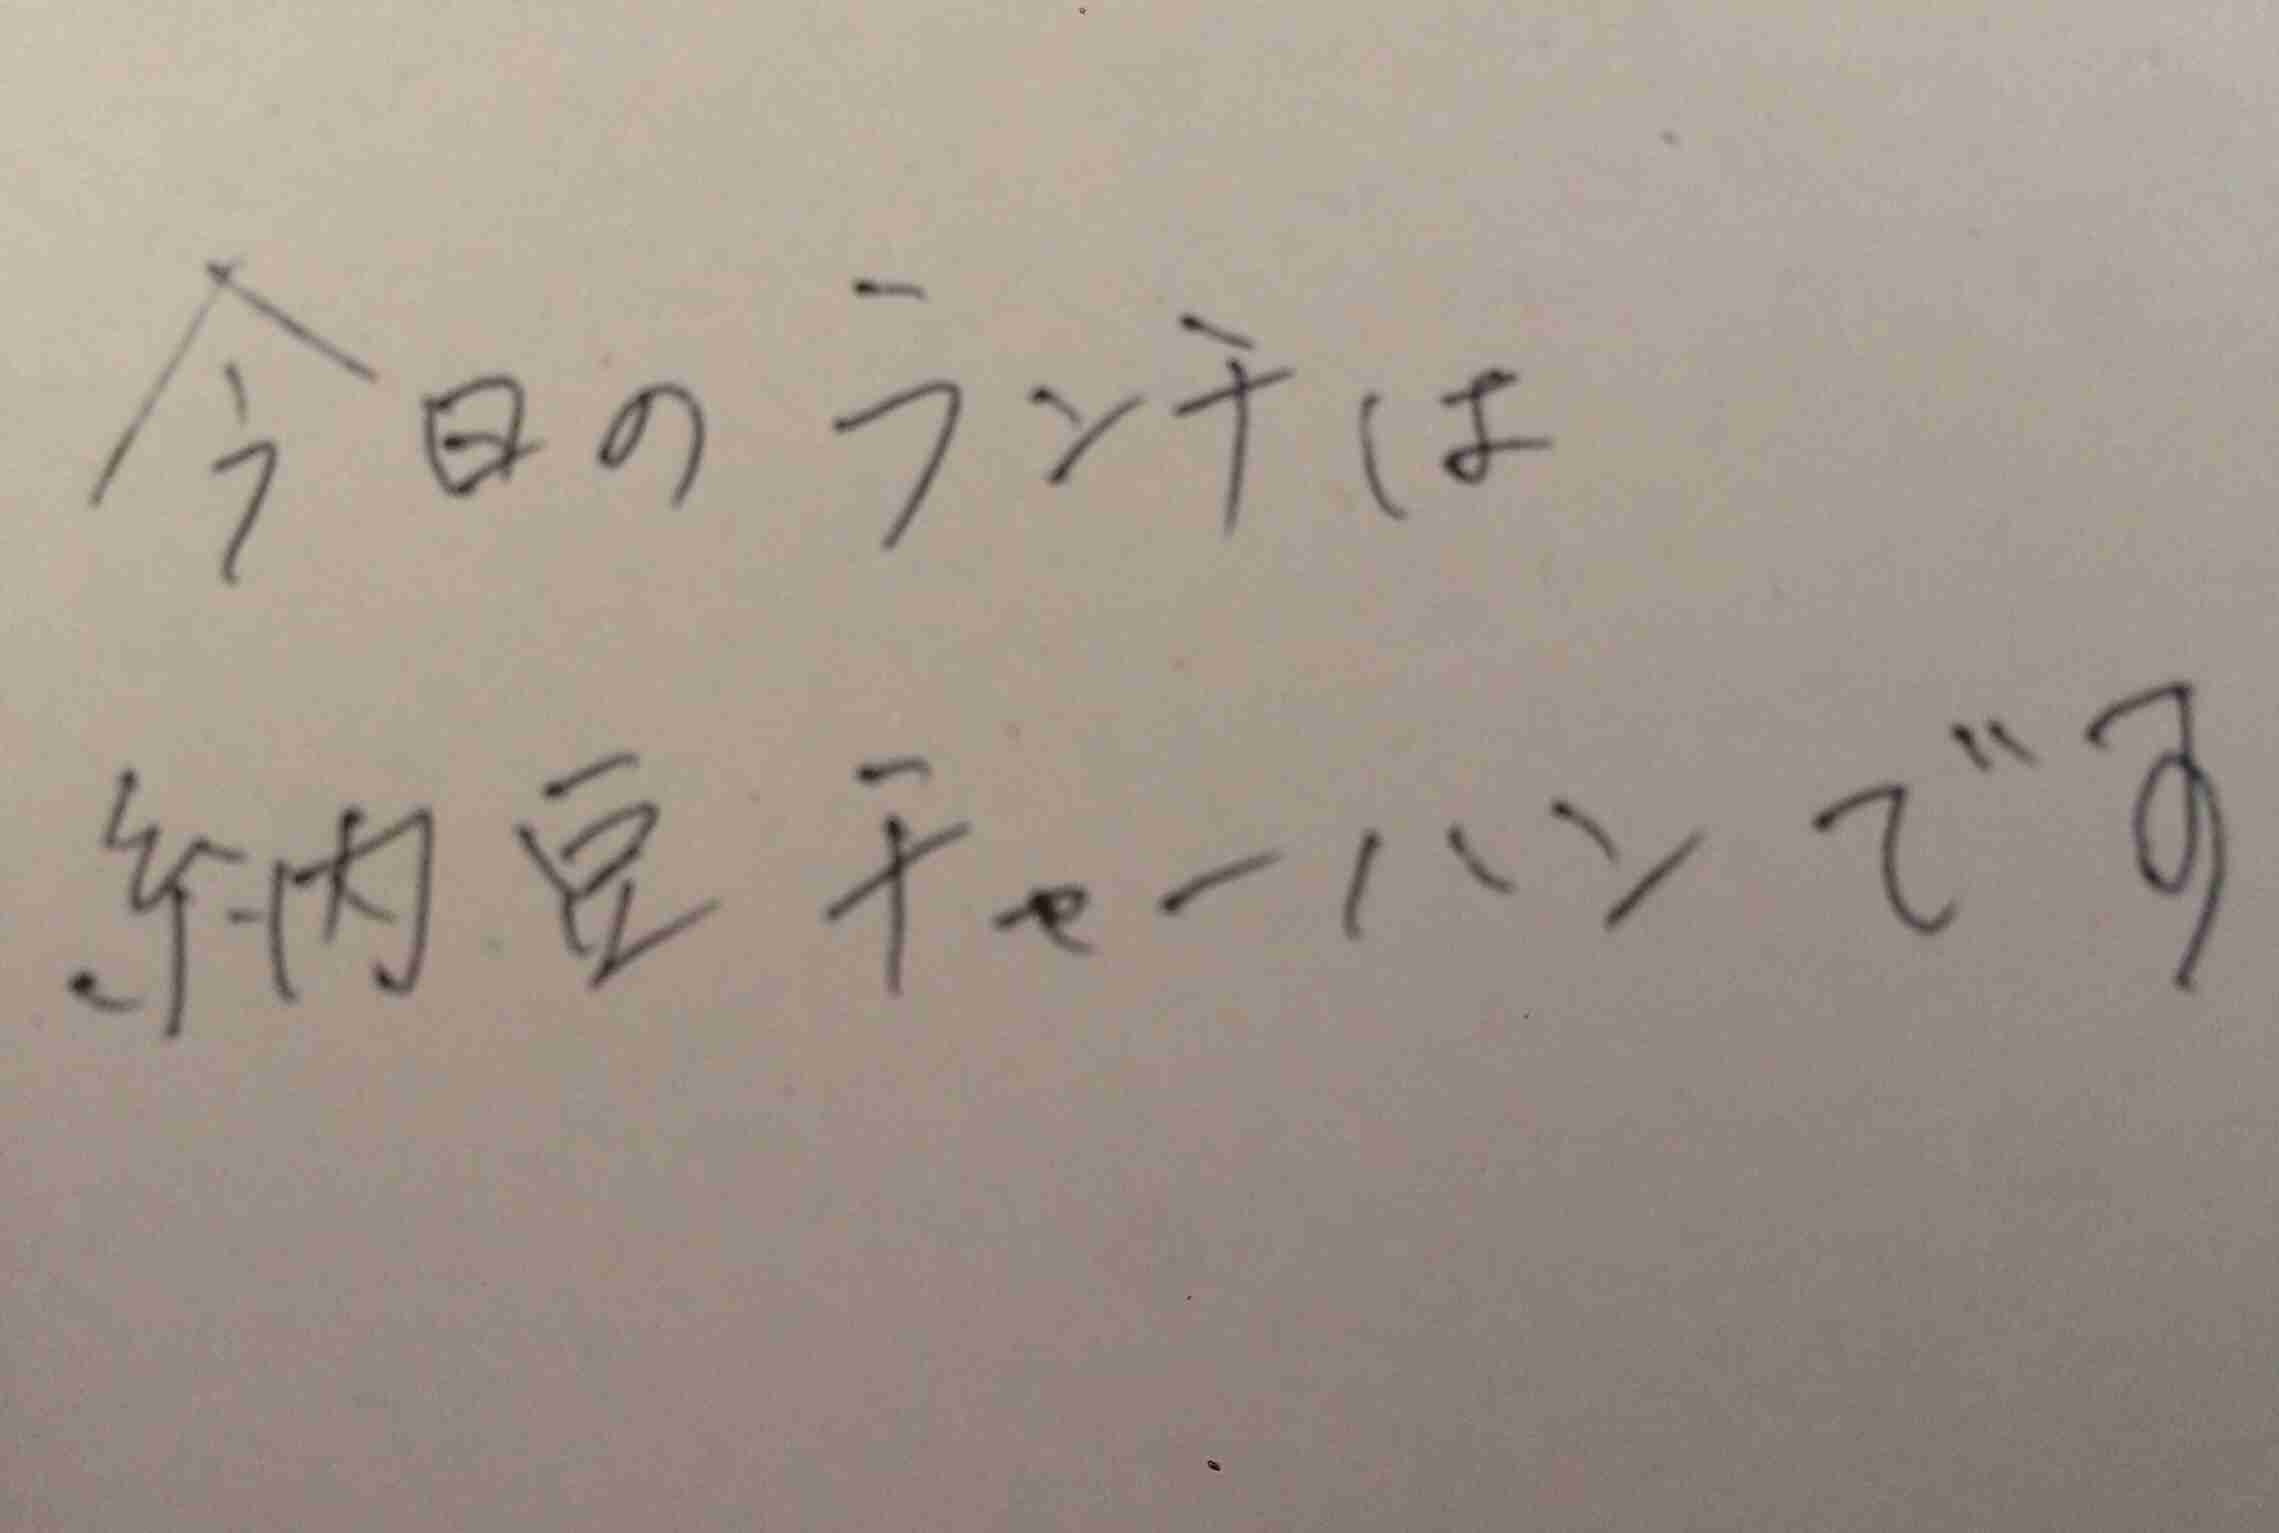 今日のランチは
納豆チャーハンです